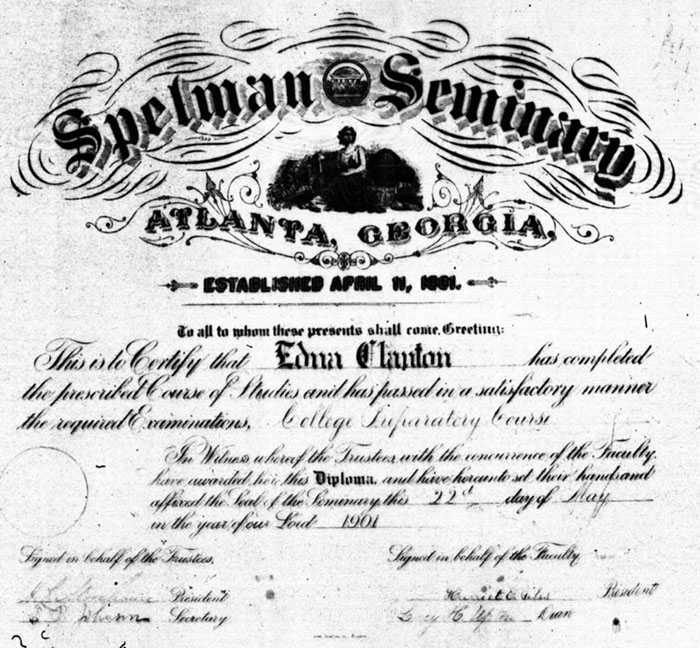 Spelman Seminary
ATLANTA, GEORGIA,
ESTABLISHED APRIL 11, 1881.
To all to whom these presents shall come, Greeting:
This is to Certify that Edna Clanton has completed
the prescribed Course of Studies and has passed in a satisfactory manner
the required Examinations, College Preparatory Course
In Witness whereof the Trustees, with the concurrence of the Faculty,
have awarded her this Diploma, and have hereunto set their hands and
affixed the Seal of the Seminary, this 22d day of May
in the year of our Lord 1901
Signed in behalf of the Trustees,
Signed in behalf of the Faculty
President
Harriet E. Giles President
Secretary
Lucy H. Upton Dean